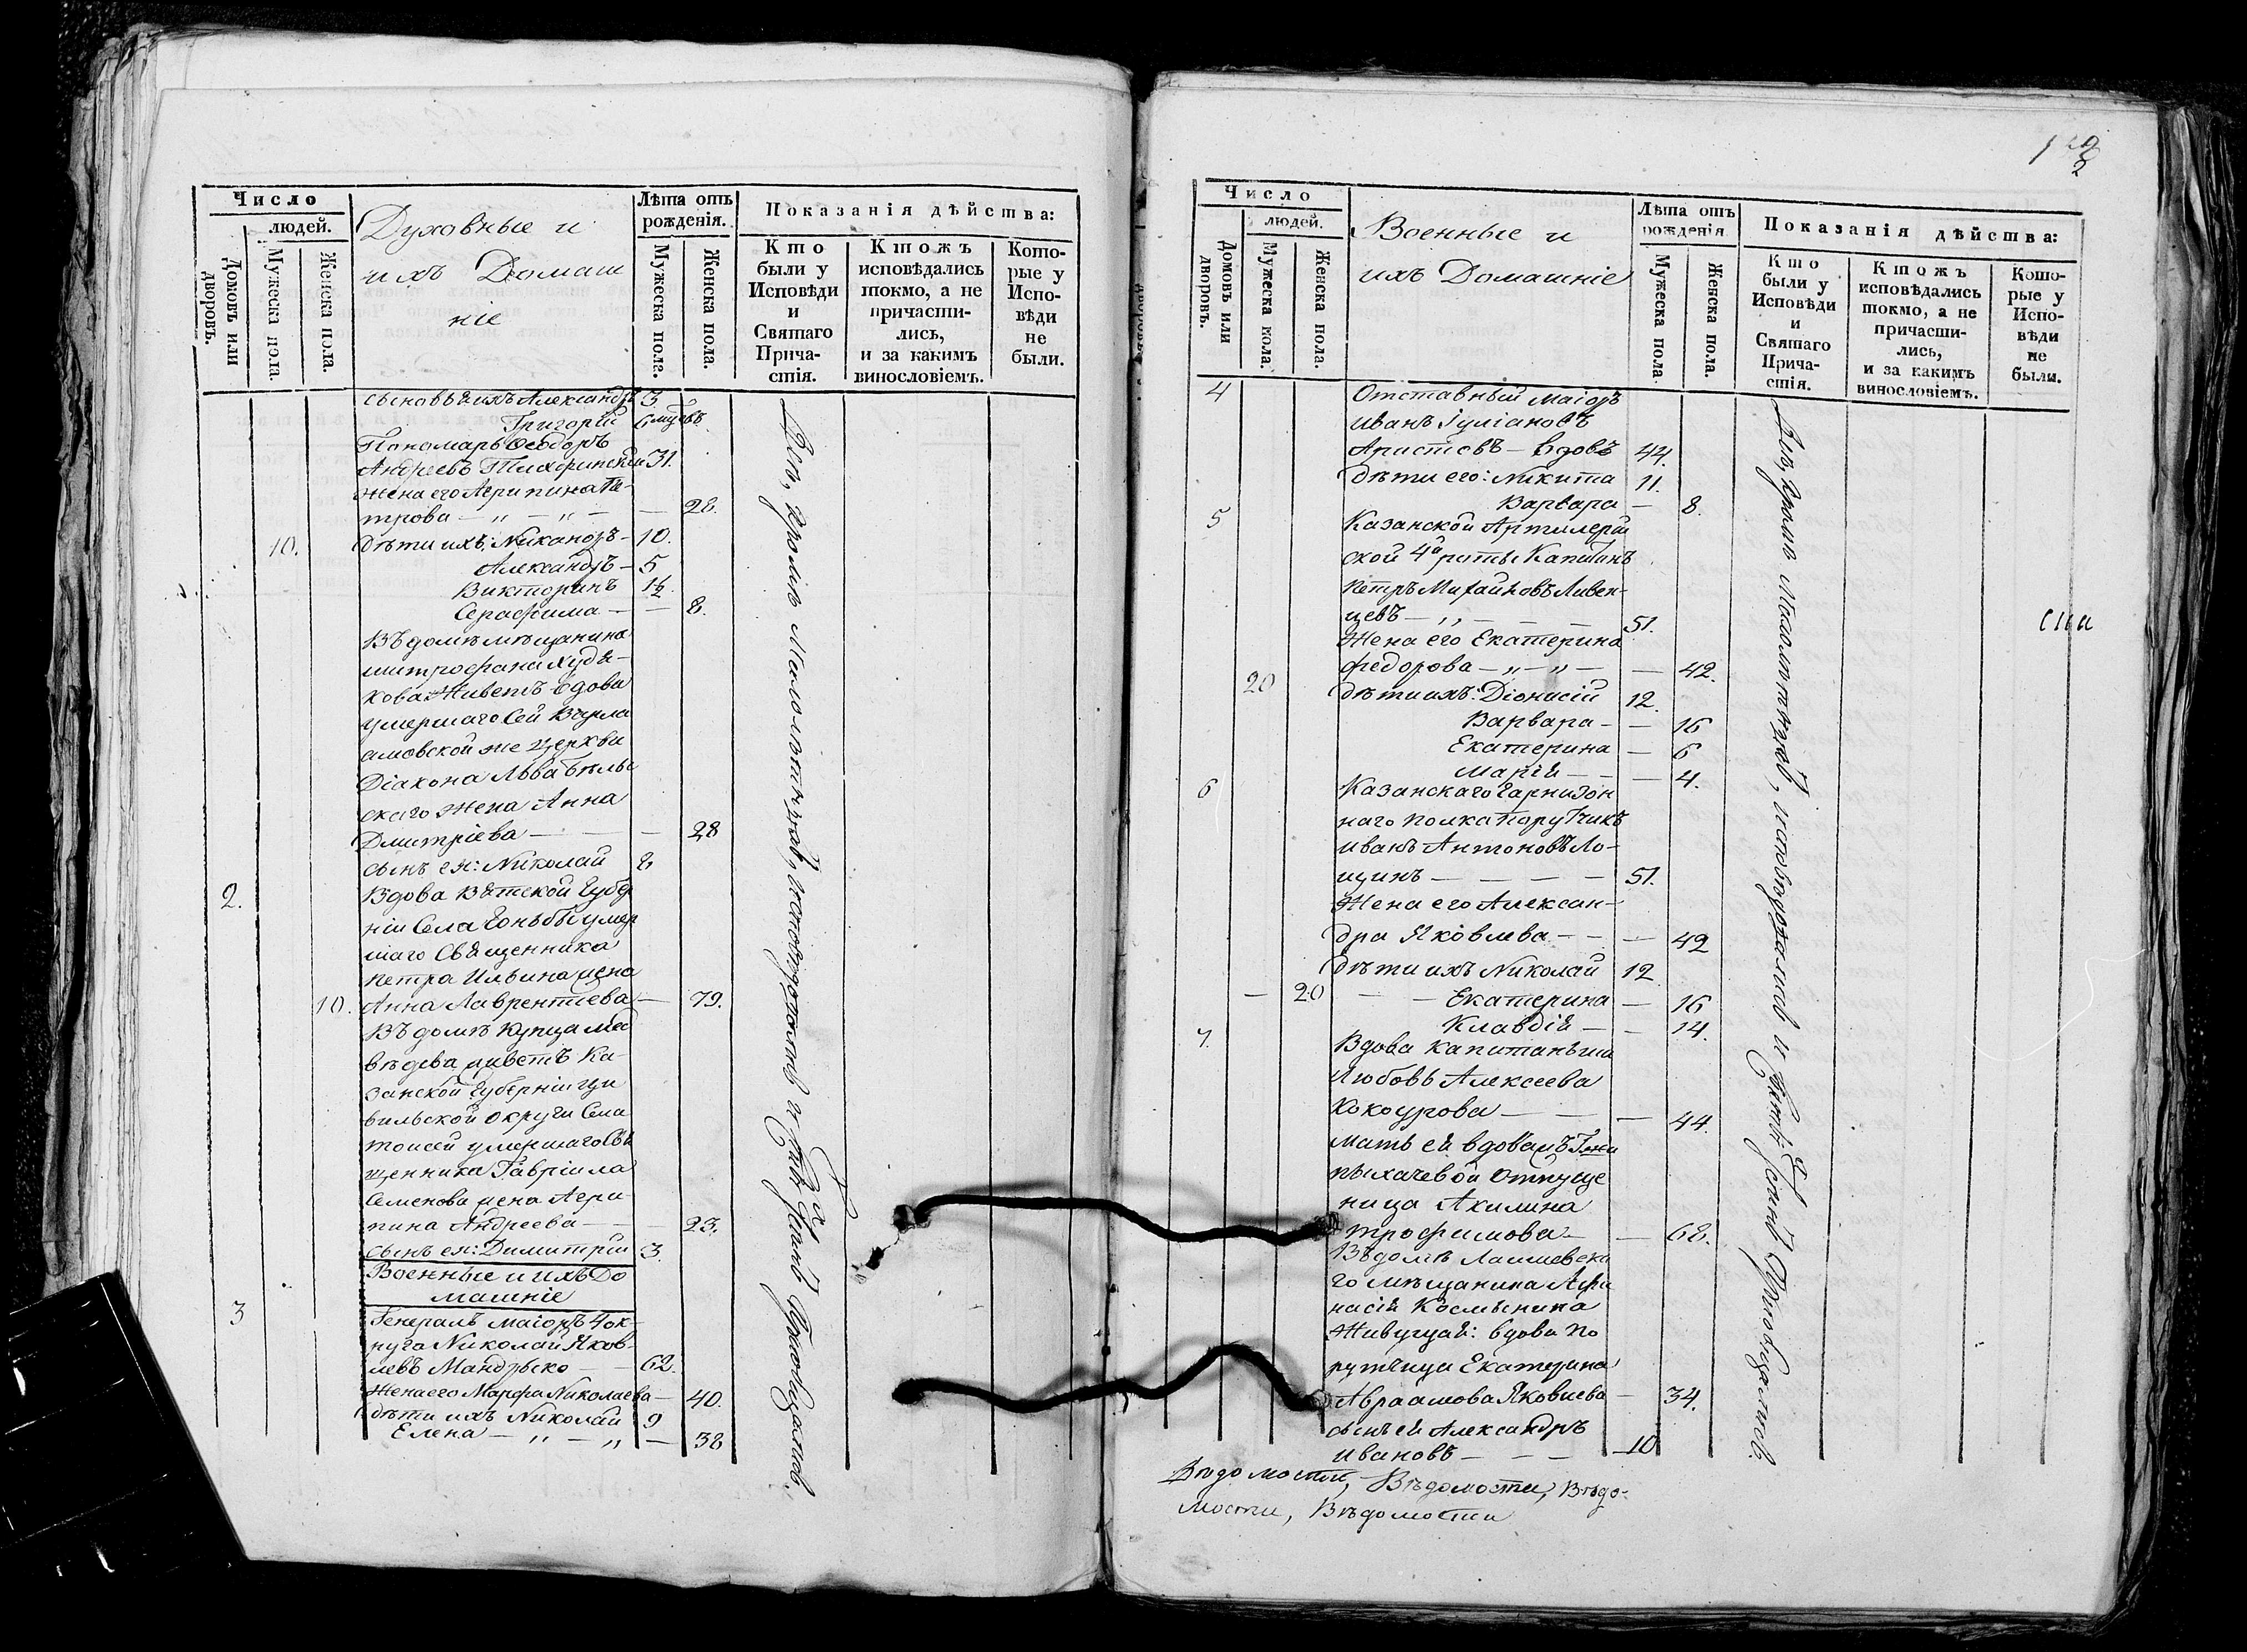 Число
людей.
Домовъ или дворовъ.
Мужеска пола.
Женска пола.
Духовные и
ихъ Домаш
ніе
Лѣта отъ
рожденія.
Мужеска пола.
Женска пола.
Показанія дѣйства:
Кто
были у
Исповѣди
и
Святаго
Прича-
стія.
Ктожъ
исповѣдались
токмо, а не
причасти-
лись,
и за какимъ
винословіемъ.
Кото-
рые у
Испо-
вѣди
не
были.
сыновья ихъ Александръ 3
Григорій 6
Пономарь Ѳеодоръ
Андреевъ 31.
жена его Агрипина Пе-
трова — „ — „ — — 28.
10. Дѣти ихъ: Никаноръ - 10.
Александръ - 5
Викторинъ 1½
Серафима — — 8.
Въ домѣ мѣщанина
митрофана Худя-
кова Живетъ вдова
умершаго Сей Варла
амовской же Церкви
Діакона Льва Бѣльс
скаго Жена Анна
Дмитріева — — — 28
сынъ ея: Николай 8
2. Вдова Вятской Губер
ніи Села умер
шаго Священника
Петра Ильина жена
10. Анна Лаврентіева — 79.
Въ домѣ Купца Мед
вѣдева живетъ Ка-
занской Губерніи Ци
вильской округи Села
умершаго Свя
щенника Гавріила
Семенова жена Агри
пина Андреева — — 23.
сынъ ея: Димитрій 3.
Военные и ихъ До
машніе
3 Генералъ маіоръ
Николай Яков-
левъ Мандрыко — — 62.
Жена его Марфа Николаева — 40.
дѣти ихъ Николай 9
Елена — „ — „ — 38
Всѣ, кромѣ Малолѣтныхъ, исповѣдались и Святыхъ Таинъ Пріобщались.
Число
людей.
Домовъ или дворовъ.
Мужеска пола.
Женска пола.
Военные и
ихъ Домашніе
Лѣта отъ
рожденія
Мужеска пола
Женска пола.
Показанія дѣйства:
Кто
были у
Исповѣди
и
Святаго
Прича-
стія.
Ктожъ
исповѣдались
токмо, а не
причасти-
лись,
и за какимъ
винословіемъ.
Кото-
рые у
Испо-
вѣди
не
были.
4 Отставный маіоръ
Иванъ Іуліановъ
Аристовъ — вдовъ 44.
Дѣти его: Никита 11.
Варвара — 8.
5 Казанской Артиллерій
ской 4й роты Капитанъ
Петръ Михайловъ Ливен-
цевъ — „ — — — 51.
Жена его Екатерина
Федорова — „ — „ — — 42.
20 дѣти ихъ: Діонисій 12.
Варвара — — 16
Екатерина — 6
Марія — — — 4.
6 Казанскаго Гарнизон
наго полка Поручикъ
Иванъ Антоновъ Ло-
щинъ — — — — 51.
Жена его Алексан-
дра Яковлева — — — 42
дѣти ихъ Николай 12
— 20 — — Екатерина — 16
Клавдія — — 14.
7. Вдова Капитанъша
Любовь Алексеева
Кокоурова — — — 44.
мать ея вдова
отпуще
ница Акилина
Трофимова — — 68.
Въ домѣ Лаишевска
го мѣщанина Афа
насія Космынина
Живущая: вдова По
рутчица Екатерина
Авраамова Яковлева — 34.
сынъ ея Александръ
Ивановъ — — — 10
Всѣ, кромѣ Малолѣтныхъ, исповѣдались и Святыхъ Таинъ Пріобщались.
Вѣдомости, Вѣдомости, Вѣдо-
мости, Вѣдомости